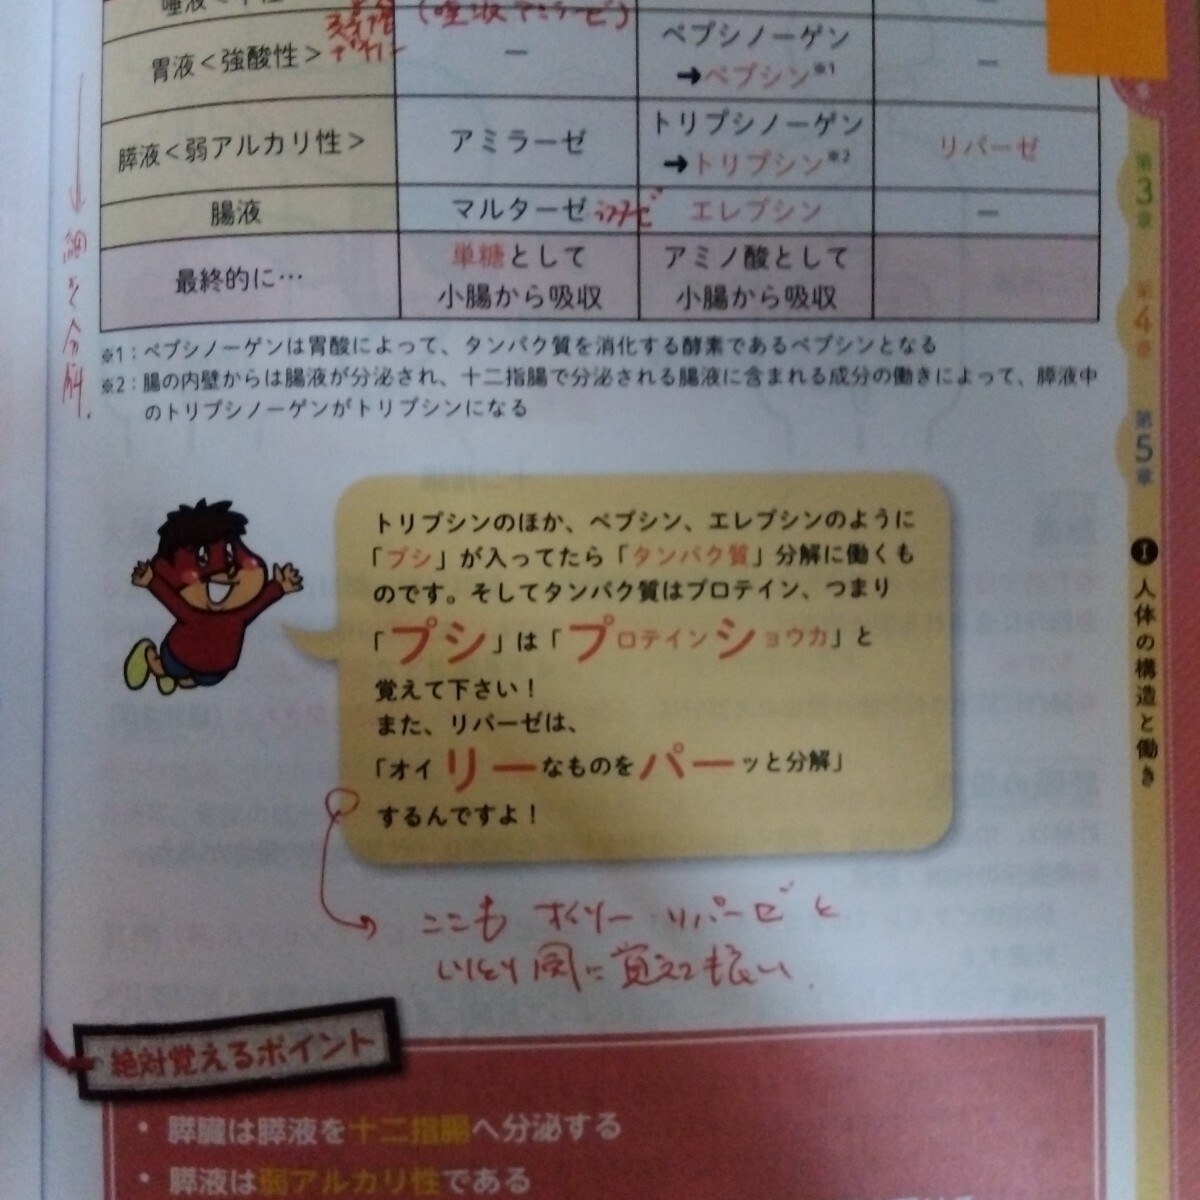 (唾液アミラーゼ)
胃液<強酸性>
−
ペプシノーゲン
➜ペプシン※1
−
膵液<弱アルカリ性>
アミラーゼ
トリプシノーゲン
➜トリプシン※2
リパーゼ
腸液
マルターゼ
エレプシン
−
最終的に…
単糖として
小腸から吸収
アミノ酸として
小腸から吸収
※1：ペプシノーゲンは胃酸によって、タンパク質を消化する酵素であるペプシンとなる
※2：腸の内壁からは腸液が分泌され、十二指腸で分泌される腸液に含まれる成分の働きによって、膵液中
のトリプシノーゲンがトリプシンになる
トリプシンのほか、ペプシン、エレプシンのように
「プシ」が入ってたら「タンパク質」分解に働くも
のです。そしてタンパク質はプロテイン、つまり
「プシ」は「プロテインショウカ」と
覚えて下さい！
また、リパーゼは、
「オイリーなものをパーッと分解」
するんですよ！
ここも オイリー リパーゼ と
しりとり風に覚えても良い.
絶対覚えるポイント
・膵臓は膵液を十二指腸へ分泌する
・膵液は弱アルカリ性である
第3章
第4章
第5章
❶人体の構造と働き